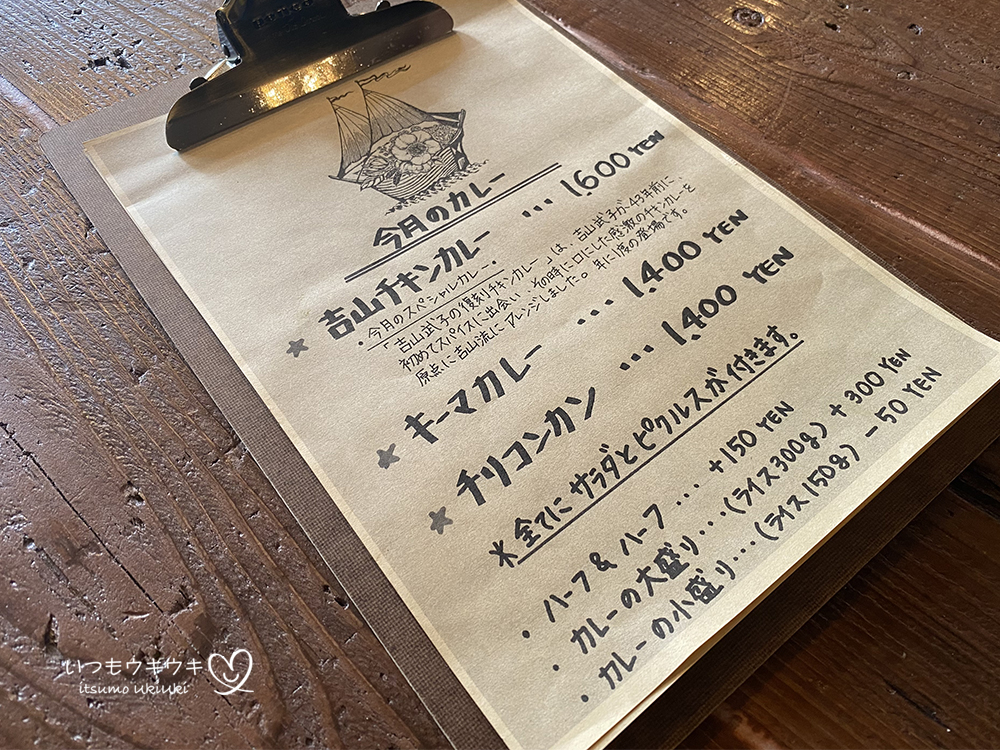 今月のカレー
★ 吉山チキンカレー ... 1,600 YEN
・今月のスペシャルカレー・
「吉山武子の復刻チキンカレー」は、吉山武子が43年前に、
初めてスパイスに出会い、その時に口にした感激のチキンカレーを
原点に吉山流にアレンジしました。年に1度の登場です。
★ キーマカレー ... 1,400 YEN
★ チリコンカン ... 1,400 YEN
※全てにサラダとピクルスが付きます。
・ハーフ&ハーフ .... +150 YEN
・カレーの大盛り...(ライス300g) +300 YEN
・カレーの小盛り...(ライス150g) -50 YEN
いつもウキウキ
itsumo ukiuki